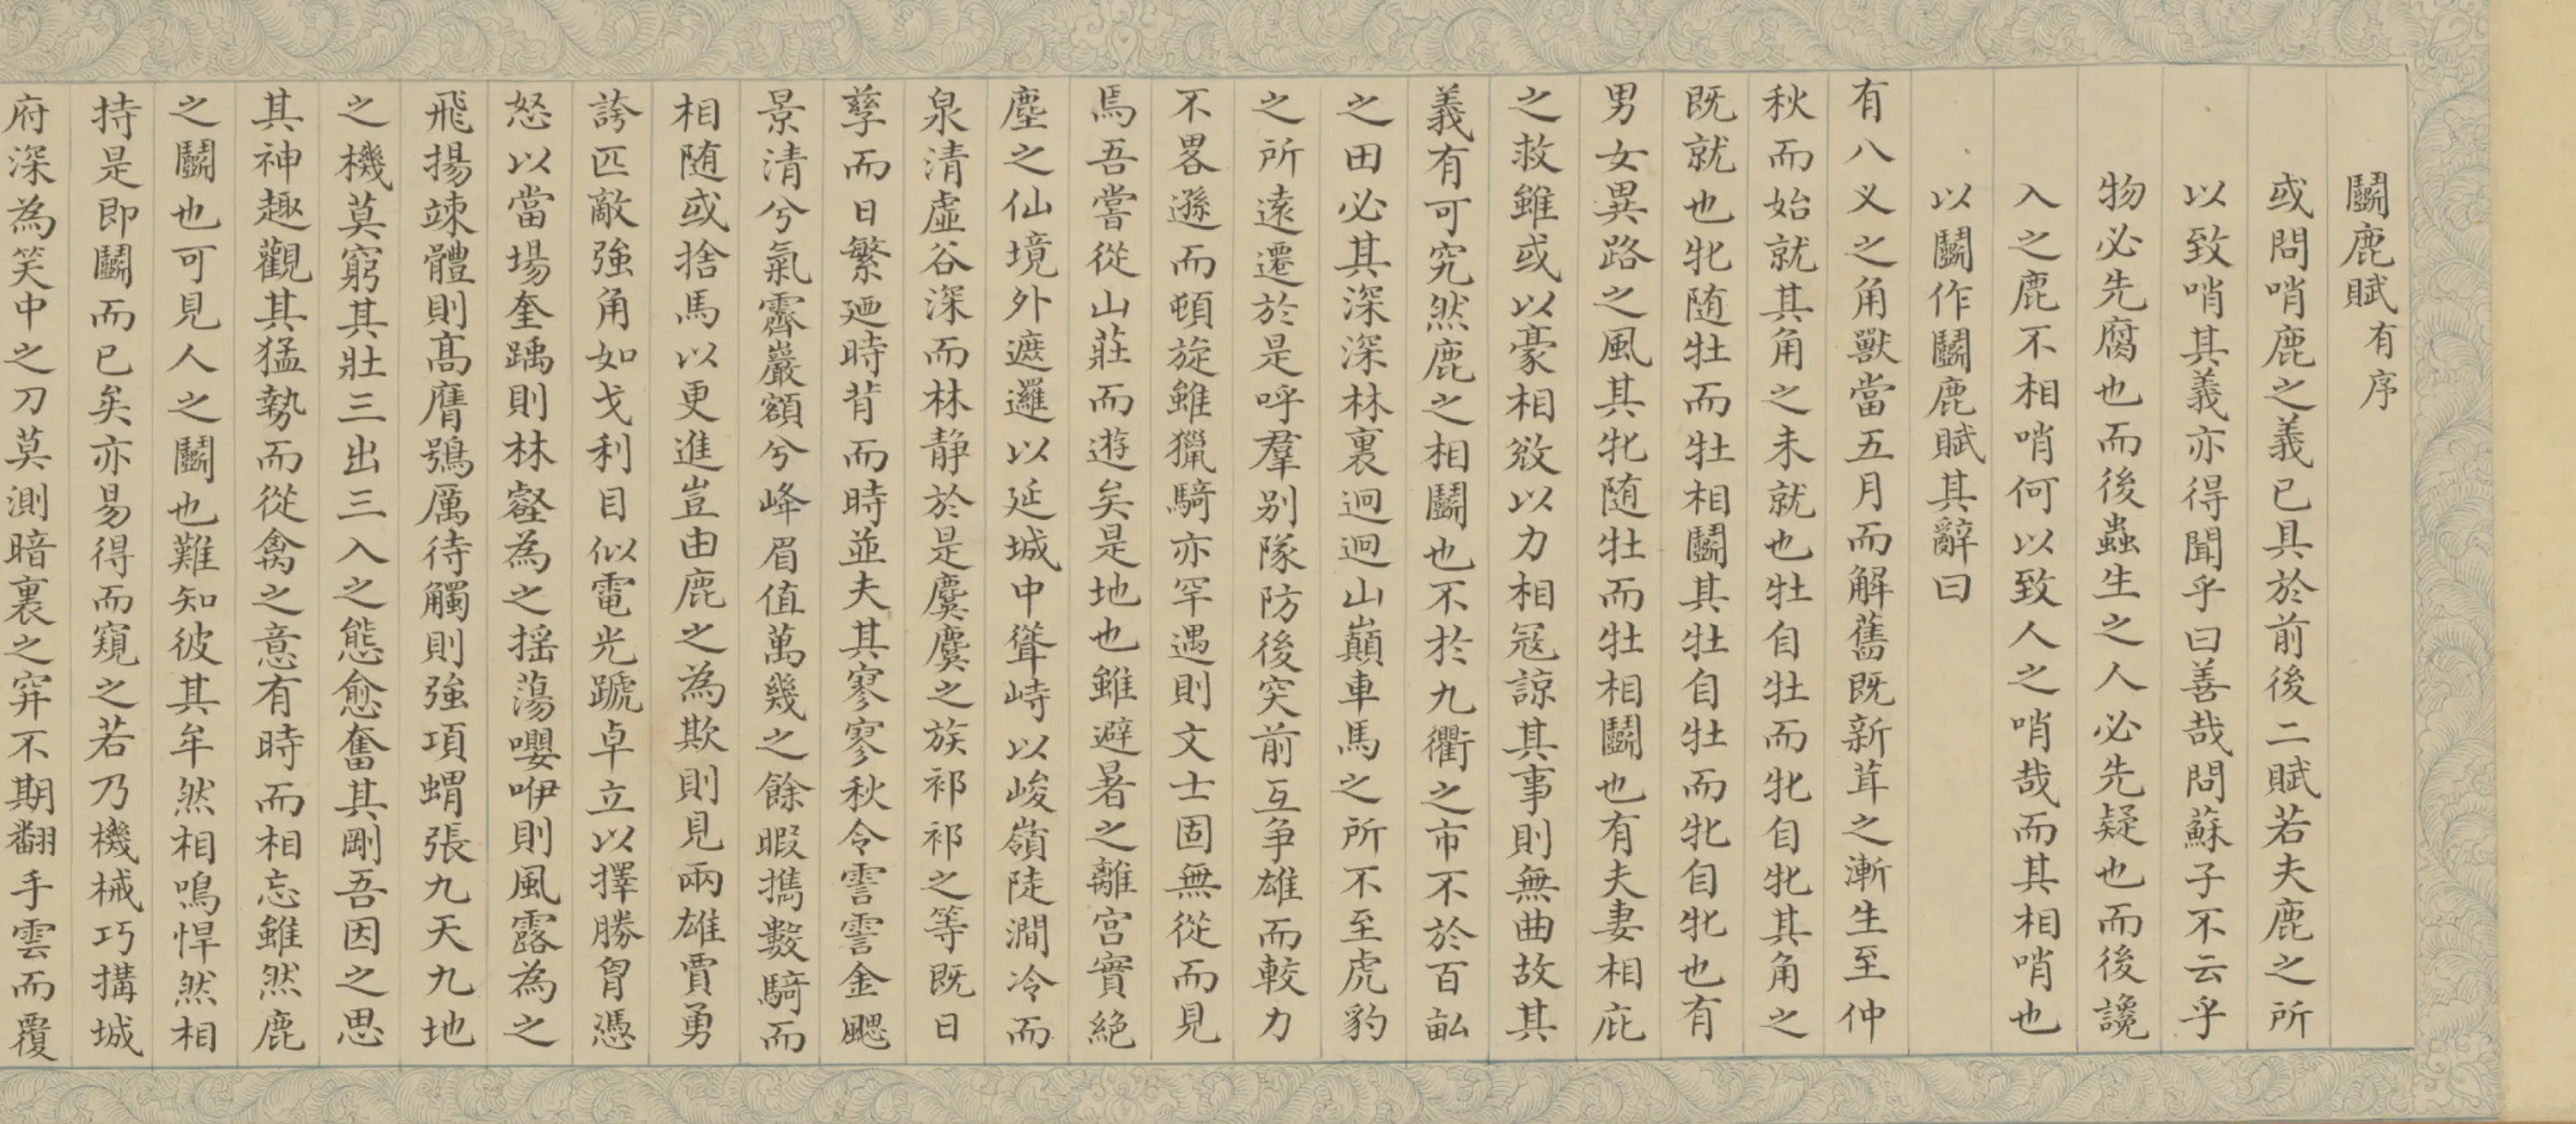 鬭鹿賦有序
或問哨鹿之義已具於前後二賦若夫鹿之所
以致哨其義亦得聞乎曰善哉問蘇子不云乎
物必先腐也而後蟲生之人必先疑也而後讒
入之鹿不相哨何以致人之哨哉而其相哨也
以鬭作鬭鹿賦其辭曰
有八义之角獸當五月而解舊既新茸之漸生至仲
秋而始就其角之未就也牡自牡而牝自牝其角之
既就也牝随牡而牡相鬭其牡自牡而牝自牝也有
男女異路之風其牝随牡而牡相鬭也有夫妻相庇
之救雖或以豪相斂以力相冦諒其事則無曲故其
義有可究然鹿之相鬭也不於九衢之市不於百畆
之田必其深深林裏迥迥山巔車馬之所不至虎豹
之所遠遷於是呼羣别隊防後突前互争雄而較力
不畧遜而頓旋雖獵騎亦罕遇則文士固無從而見
焉吾嘗從山莊而遊矣是地也雖避暑之離宮實絕
塵之仙境外遮邏以延城中聳峙以峻嶺陡澗冷而
泉清虛谷深而林静於是麌麌之族祁祁之等既日
孳而日繁廼時背而時並夫其寥寥秋令霅霅金颸
景清兮氣霽巖額兮峰眉值萬幾之餘暇攜數騎而
相随或捨馬以更進豈由鹿之為欺則見兩雄賈勇
誇匹敵強角如戈利目似電光踞卓立以擇勝胷憑
怒以當場奎踽則林壑為之揺蕩嚶咿則風露為之
飛揚竦體則髙膺鶚厲待觸則強項蝟張九天九地
之機莫窮其壯三出三入之態愈奮其剛吾因之思
其神趣觀其猛勢而從禽之意有時而相忘雖然鹿
之鬭也可見人之鬭也難知彼其牟然相鳴悍然相
持是即鬭而已矣亦易得而窺之若乃機械巧搆城
府深為笑中之刀莫測暗裏之穽不期翻手雲而覆